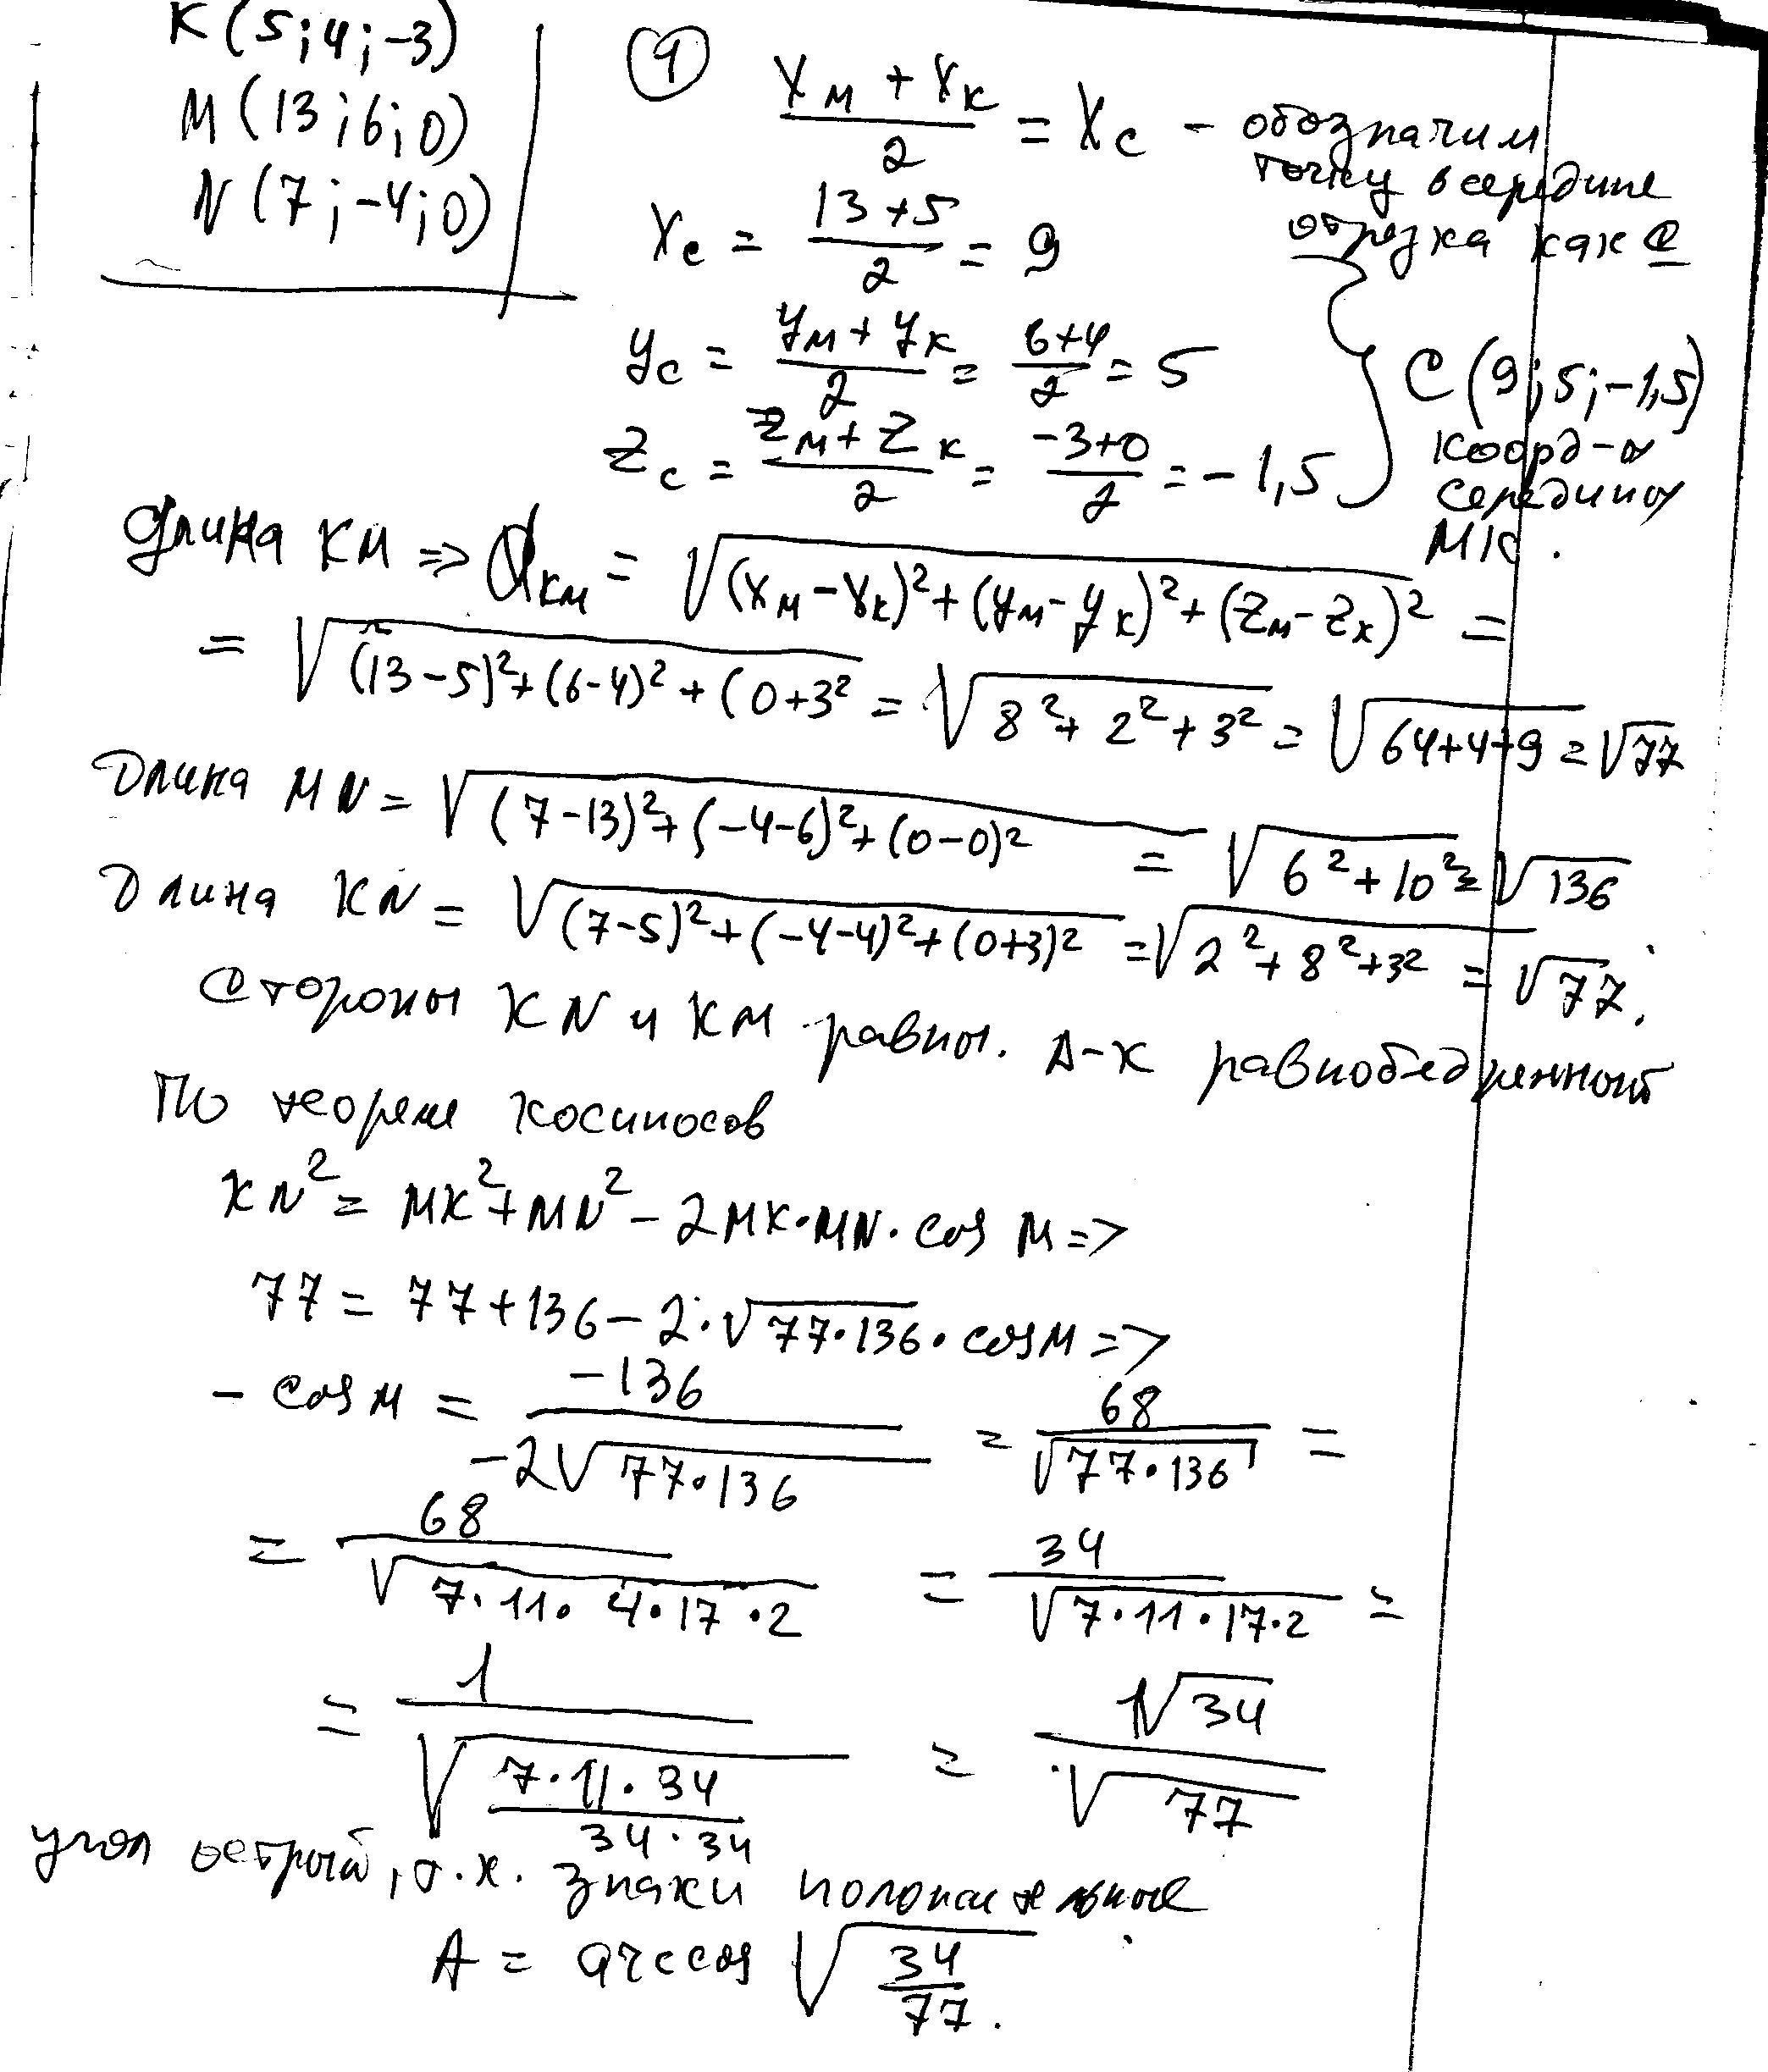 K(5;4;-3)
M(13;6;0)
N(7;-4;0)
① (Xм + Xк)/2 = Xc - обозначим
точку в середине
отрезка как C
Xc = (13+5)/2 = 9
Yc = (Yм + Yк)/2 = (6+4)/2 = 5
Zc = (Zм + Zк)/2 = (-3+0)/2 = -1,5
C(9;5;-1,5)
коорд-ы
середины
MK.
Длина KM => dкм = √((Xм-Xк)²+(Yм-Yк)²+(Zм-Zк)²) =
= √((13-5)²+(6-4)²+(0+3²) = √(8²+2²+3²) = √(64+4+9) = √77
Длина MN = √((7-13)²+(-4-6)²+(0-0)²) = √(6²+10²) = √136
Длина KN = √((7-5)²+(-4-4)²+(0+3)²) = √(2²+8²+3²) = √77.
Стороны KN и KM равны. Δ-к равнобедренный
По теореме косинусов
KN² = MK²+MN² - 2MK·MN·cos M =>
77 = 77+136 - 2·√(77·136)·cos M =>
- cos M = -136/(-2√(77·136)) = 68/√(77·136) =
= 68/√(7·11·4·17·2) = 34/√(7·11·17·2) =
= 1/√((7·11·34)/(34·34)) = 1√34/√77
угол острый, т.к. знаки положительные
A = arccos √(34/77).